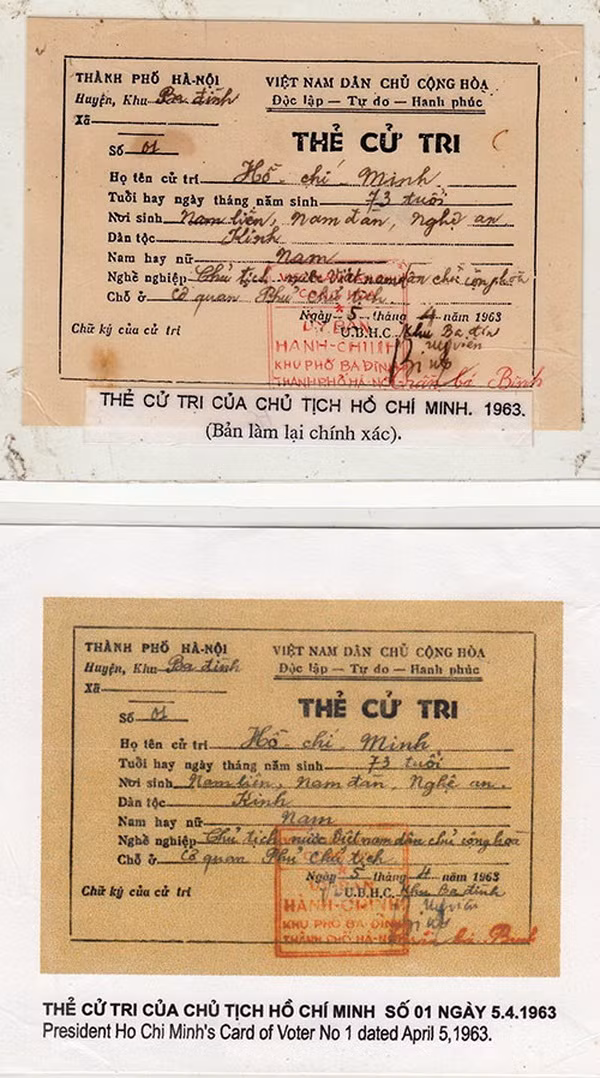 THÀNH PHỐ HÀ-NỘI
Huyện, Khu Ba đình
Xã
Số 01
VIỆT NAM DÂN CHỦ CỘNG HÒA
Độc lập — Tự do — Hanh phúc
THẺ CỬ TRI
Họ tên cử tri Hồ - chí - Minh
Tuổi hay ngày tháng năm sinh 73 tuổi
Nơi sinh Nam liên, Nam đàn, Nghệ an
Dân tộc Kinh
Nam hay nữ Nam
Nghề nghiệp Chủ tịch nước Việt nam dân chủ cộng hòa
Chỗ ở Cơ quan Phủ chủ tịch
Ngày 5 tháng 4 năm 1963
Chữ ký của cử tri
U.B.H.C. Khu Ba đình
Uỷ viên
HÀNH-CHÍNH
KHU PHỐ BA ĐÌNH
THÀNH PHỐ HÀ-NỘI
bá Bình
THẺ CỬ TRI CỦA CHỦ TỊCH HỒ CHÍ MINH. 1963.
(Bản làm lại chính xác).
THÀNH PHỐ HÀ-NỘI
Huyện, Khu Ba đình
Xã
Số 01
VIỆT NAM DÂN CHỦ CỘNG HÒA
Độc lập — Tự do — Hanh phúc
THẺ CỬ TRI
Họ tên cử tri Hồ - chí - Minh
Tuổi hay ngày tháng năm sinh 73 tuổi
Nơi sinh Nam liên, Nam đàn, Nghệ an.
Dân tộc Kinh
Nam hay nữ Nam
Nghề nghiệp Chủ tịch nước Việt nam dân chủ cộng hòa
Chỗ ở Cơ quan Phủ chủ tịch
Ngày 5 tháng 4 năm 1963
Chữ ký của cử tri
U.B.H.C. Khu Ba đình
Uỷ viên
HÀNH-CHÍNH
KHU PHỐ BA ĐÌNH
THÀNH PHỐ HÀ-NỘI
bá Bình
THẺ CỬ TRI CỦA CHỦ TỊCH HỒ CHÍ MINH SỐ 01 NGÀY 5.4.1963
President Ho Chi Minh's Card of Voter No 1 dated April 5,1963.